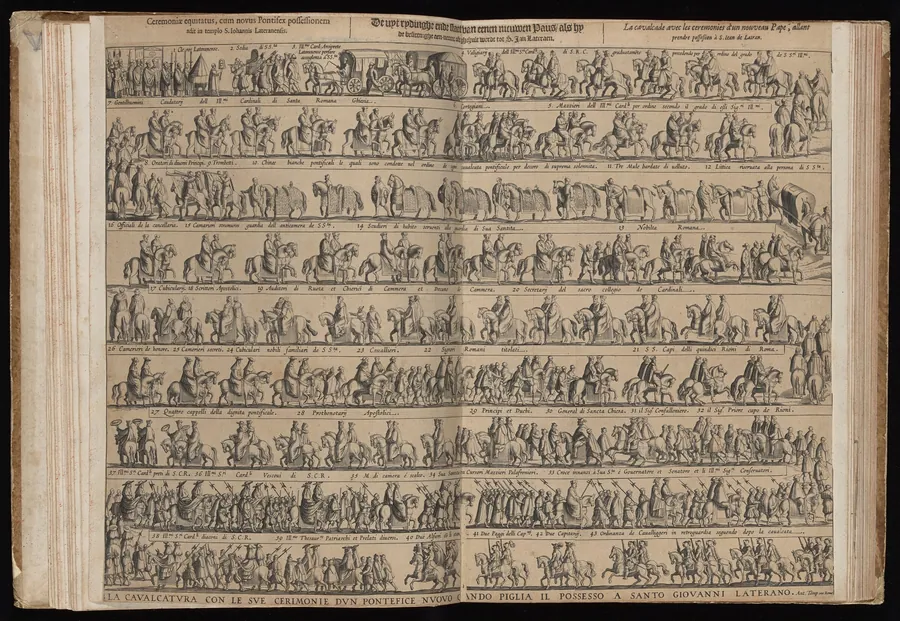 Ceremoniæ equitatus, cum novus Pontifex possessionem
init in templo S. Iohannis Lateranensis.
De uyt rydinghe ende van eenen nieuwen Paus, als hy
de besittinghe een wordt tot S. Jan Lateraen.
La cavalcade avec les ceremonies d'un nouveau Pape, allant
prendre possession à S. Iean de Latran.
2 Sedia di S. Sta.
3. Illmi. Card. Arciprete
Lateranense
4. Valigiary dell Illmi. Sri. Cardli. di S. R. C. gradatamente precedendo per ordine del grado di S. Sri. Illme.
7 Gentilhuomini Caudatarj dell Illmi. Cardinali di Santa Romana Ghiesia...
5. Mazzieri dell Illmi. Cardli. per ordine secondo il grado di essi Sigri. Illmi.
8. Oratori di diversi Principi. 9 Trombetti. 10. Chinee bianche pontificali le quali sono condotte nel ordine di ogni cavalcata pontificale per decoro di suprema solennita. 11. Tre Mule bardate di velluto. 12 Lettica riservata alla persona di S. Sta.
16 Officiali de la cancellaria. 15 Camerieri guardia dell anticamera de S. Sta. 14 Scudieri di habito di Sua Santita...
13 Nobilta Romana...
17 Cubiculary. 18 Scrittori Apostolici. 19 Auditori di Ruota et Chierici di Cammera et Camera. 20 Secretarj del sacro collegio de Cardinali...
26 Camorieri de honore. 25 Camorieri secreti. 24 Cubiculari nobili familiari de S Sta. 23 Cavallieri. 22 Signori Romani titolati...
21 S.S. Capi delli quindio Rioni di Roma.
27 Quattro cappelli della dignita pontificale. 28 Prothonotarij Apostolici...
29 Principi et Duchi. 30 General di Sancta Chiesa. 31 il Sigr. Confalloniero. 32 il Sigr. Priore capo de Rioni.
37 Illmi. Sri. Cardli. preti di S.C.R. 36 Illmi. Sri. Cardli. Vescovi di S.C.R. 35 M. di camera è coslo. 34 Sua
Cursori Mazzieri Palafrenieri. 33 Croce innanzi à Sua Sta. è Governatore et Senatore et li Illmi. Sigri. Conservatori.
38 Illmi. Sri. Cardli. diaconi di S.C.R. 39 Illmo. Thesaurro. Patriarchi et Prelati diversi. 40 Due
41 Due Paggi delli Capni. 42 Due Capitanij. 43 Ordinanza de Cavallieri in retroguardia seguendo dopo la cavalcata...
LA CAVALCATVRA CON LE SVE CERIMONIE DVN PONTEFICE NVOVO ANDO PIGLIA IL POSSESSO A SANTO GIOVANNI LATERANO. Ant. Temp.